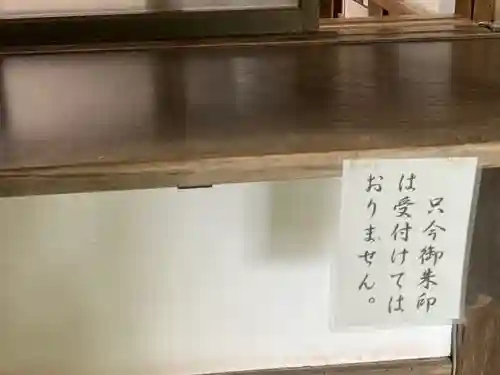 只今御朱印
は受付けては
おりません。